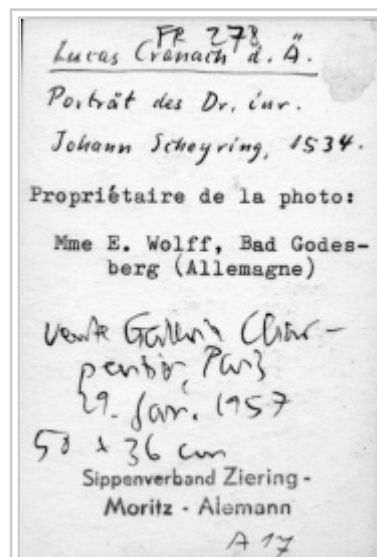 FR 278
Lucas Cranach d. Ä.
Porträt des Dr. iur.
Johann Scheyring, 1534.
Propriétaire de la photo:
Mme E. Wolff, Bad Godes-
berg (Allemagne)
vente Galerie Char-
pentier, Paris
29. Jan. 1957
50 x 36 cm
Sippenverband Ziering -
Moritz - Alemann
A 17